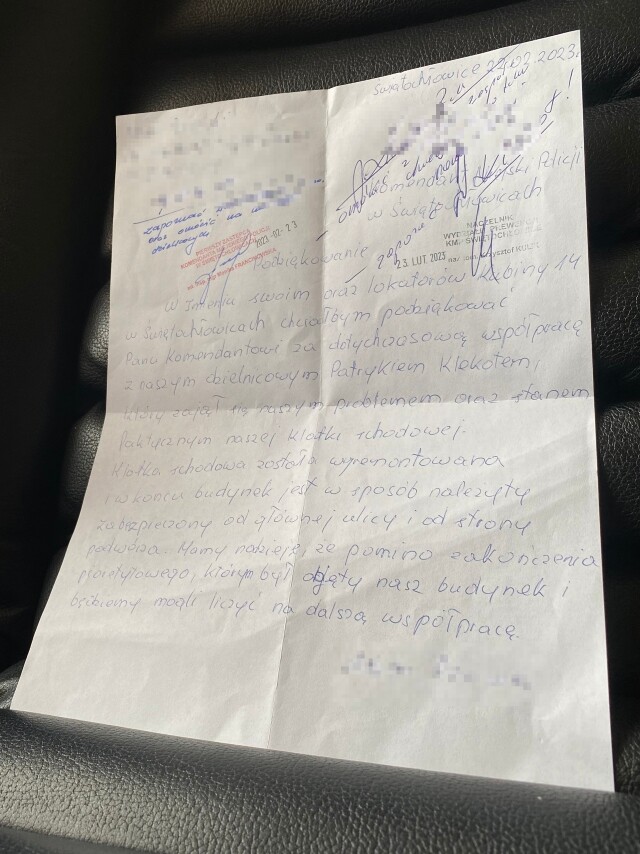 Świętochłowice 22.02.2023.
Komendant Miejski Policji
w Świętochłowicach
zapoznać
oraz omówić na
2023-02-23
NACZELNIK
KMP ŚWIĘTOCHŁOWICE
23. LUT 2023
Podziękowanie
W imieniu swoim oraz lokatorów Kubiny 14
w Świętochłowicach chciałbym podziękować
Panu Komendantowi za dotychczasową współpracę
z naszym dzielnicowym Patrykiem Klekotem,
który zajął się naszym problemem oraz stanem
faktycznym naszej klatki schodowej.
Klatka schodowa została wyremontowana
i w końcu budynek jest w sposób należyty
zabezpieczony od głównej ulicy i od strony
podwórza. Mamy nadzieję, że pomimo zakończenia
priorytetowego, którym był objęty nasz budynek i
będziemy mogli liczyć na dalszą współpracę.